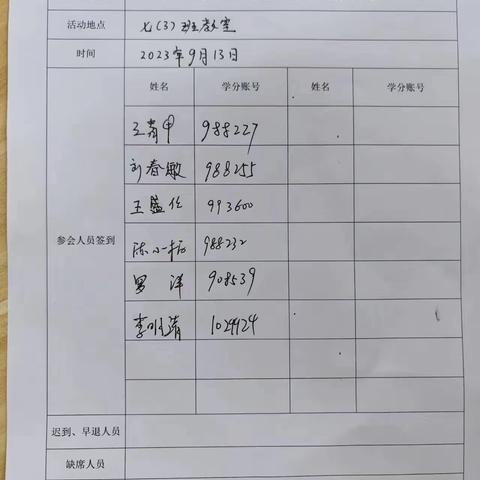 活动地点 七(3)班教室
时间 2023年9月13日
姓名 学分账号 姓名 学分账号
参会人员签到
988227
刘春敏 988255
王盛仕 993600
988232
罗洋 908539
1029124
迟到、早退人员
缺席人员